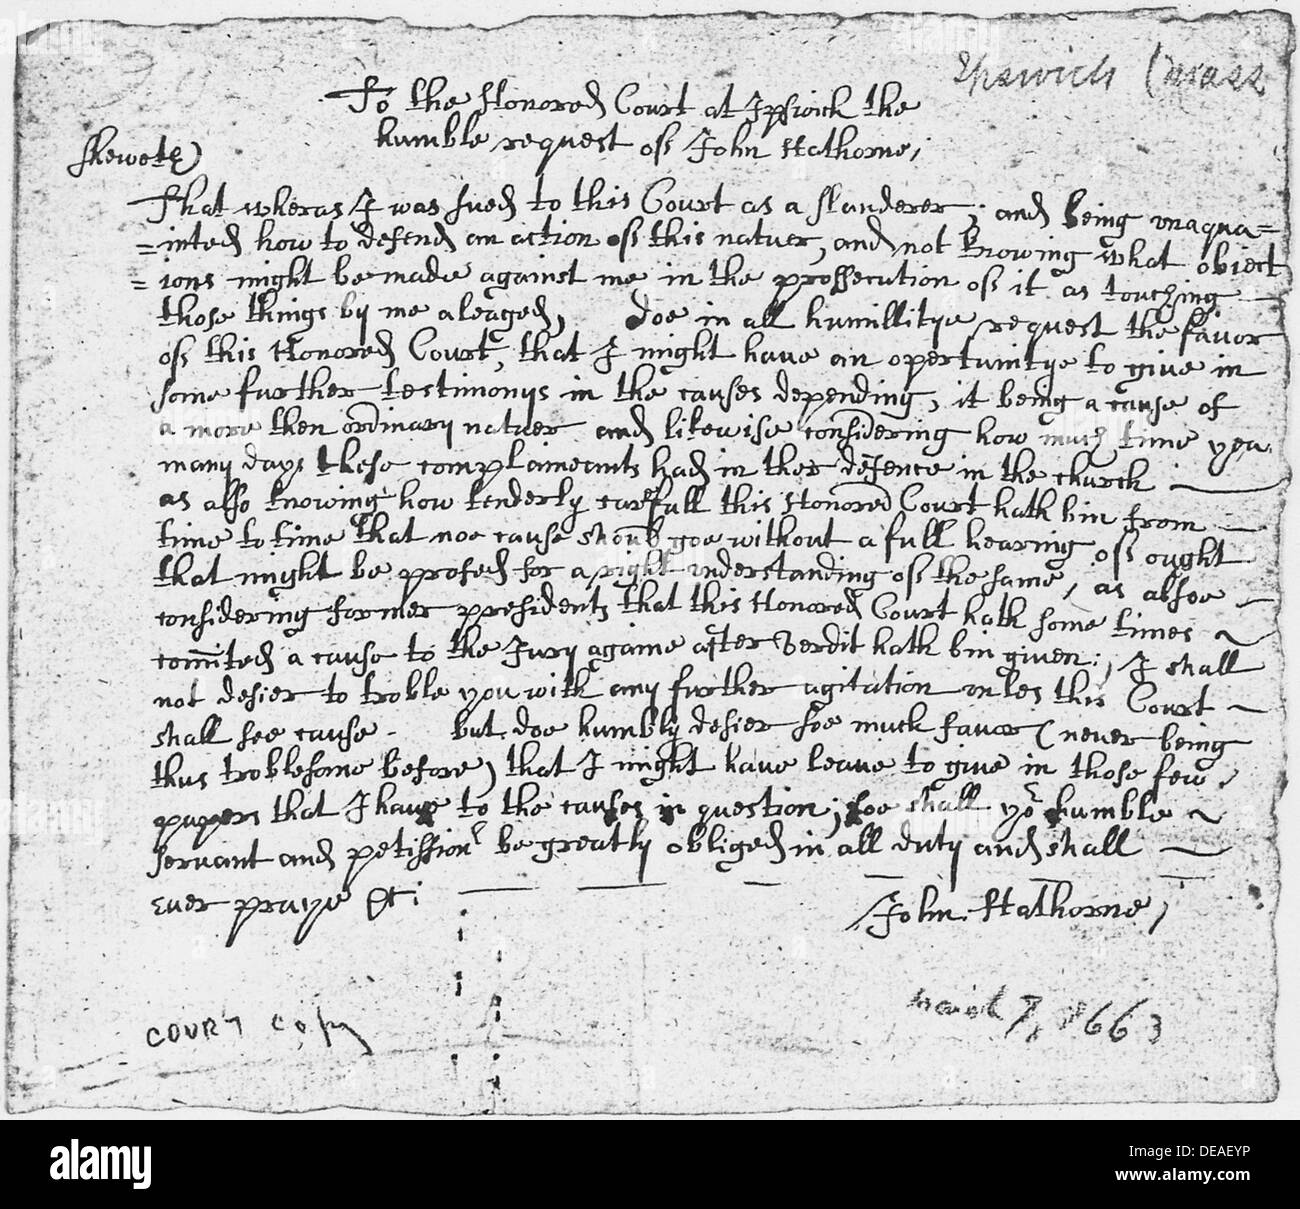 Ipswich (mass
To the Honored Court at Ipswich the
humble request off John Hathorne,
sheweth)
That wheras I was sued to this Court as a slanderer; and being vnaqua=
=inted how to defend an action off this natuer, and not knowing what obiect
=ions might be made against me in the prossecution off it as touching
those things by me aleaged, doe in all humillitye request the favor
off this Honored Court, that I might have an opertunitye to give in
some further testimonys in the causes depending, it being a cause of
a more then ordinary natuer and likewise considering how much time yea
many days these complaineants had in ther defence in the church
as also knowing how tenderly carefull this Honored Court hath bin from
time to time that noe cause should goe without a full hearing off ought
that might be profed for a right vnderstanding off the same, as alsoe
considering former presidents that this Honored Court hath some times
comited a cause to the Jury againe after verdit hath bin given; I shall
not desier to troble you with any further agitation vnles this Court
shall see cause - but doe humbly desier soe much favor (never being
thus troblesome before) that I might have leave to give in those few
papers that I have to the causes in question; soe shall yor humble
servant and petissionr be greatly obliged in all duty and shall
ever praye &c:
John Hathorne,
COURT Copy
March 1663
alamy
Image ID: DEAEYP
www.alamy.com